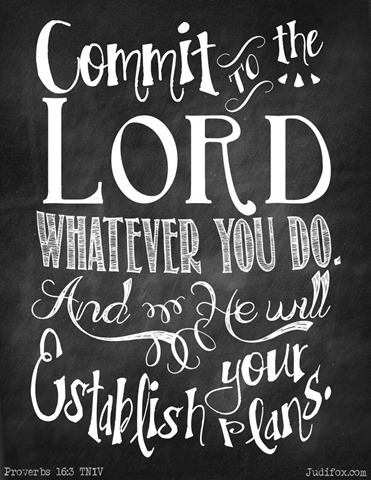 Commit to the
LORD
WHATEVER YOU DO.
And He will
Establish your
Plans.
Proverbs 16:3 TNIV
Judifox.com